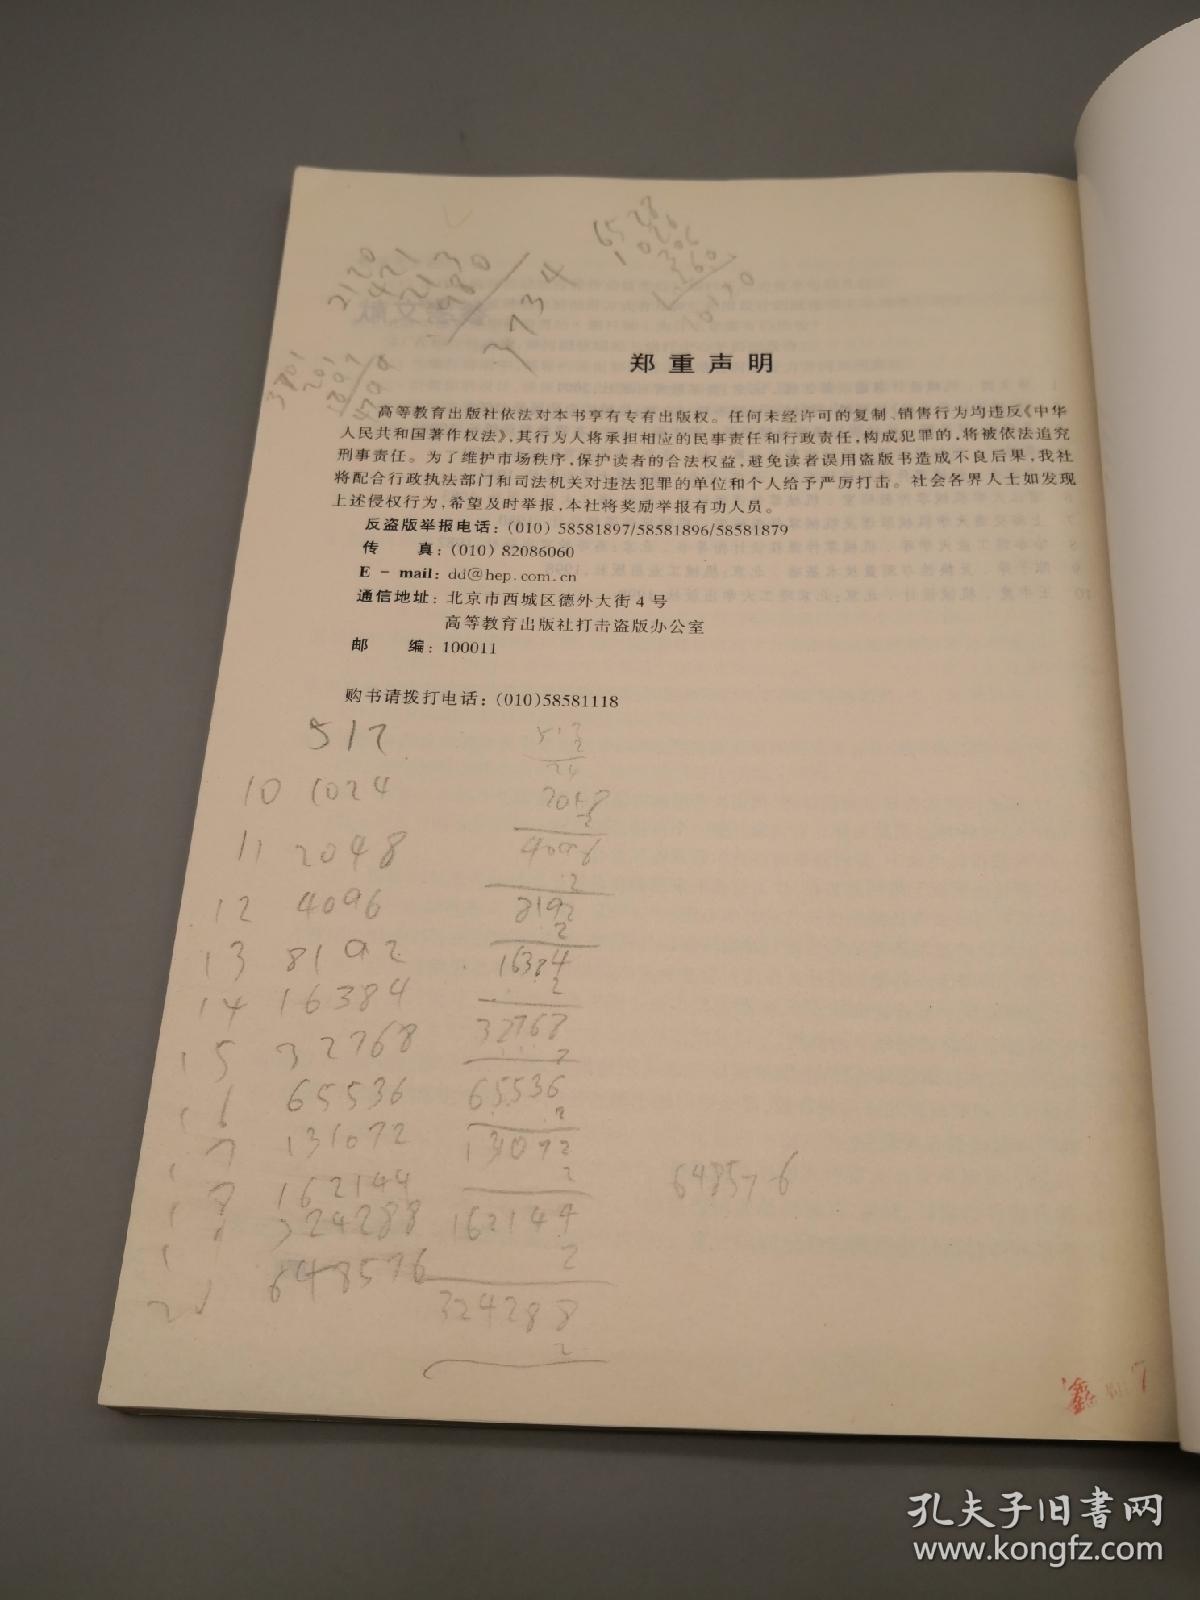 2120
421
213
980
3734
6528
1026
306
360
3801
201
郑重声明
高等教育出版社依法对本书享有专有出版权。任何未经许可的复制、销售行为均违反《中华
人民共和国著作权法》,其行为人将承担相应的民事责任和行政责任,构成犯罪的,将被依法追究
刑事责任。为了维护市场秩序,保护读者的合法权益,避免读者误用盗版书造成不良后果,我社
将配合行政执法部门和司法机关对违法犯罪的单位和个人给予严厉打击。社会各界人士如发现
上述侵权行为,希望及时举报,本社将奖励举报有功人员。
反盗版举报电话:(010)58581897/58581896/58581879
传 真:(010)82086060
E - mail: dd@hep.com.cn
通信地址:北京市西城区德外大街4号
高等教育出版社打击盗版办公室
邮 编:100011
购书请拨打电话:(010)58581118
512
10 1024
11 2048
12 4096
13 8192
14 16384
15 32768
16 65536
17 131072
18 162144
324288
648576
512
2
24
2048
2
4096
2
8192
2
16384
2
32768
2
65536
2
131072
2
162144
2
324288
2
648576
鑫
7
孔夫子旧书网
www.kongfz.com